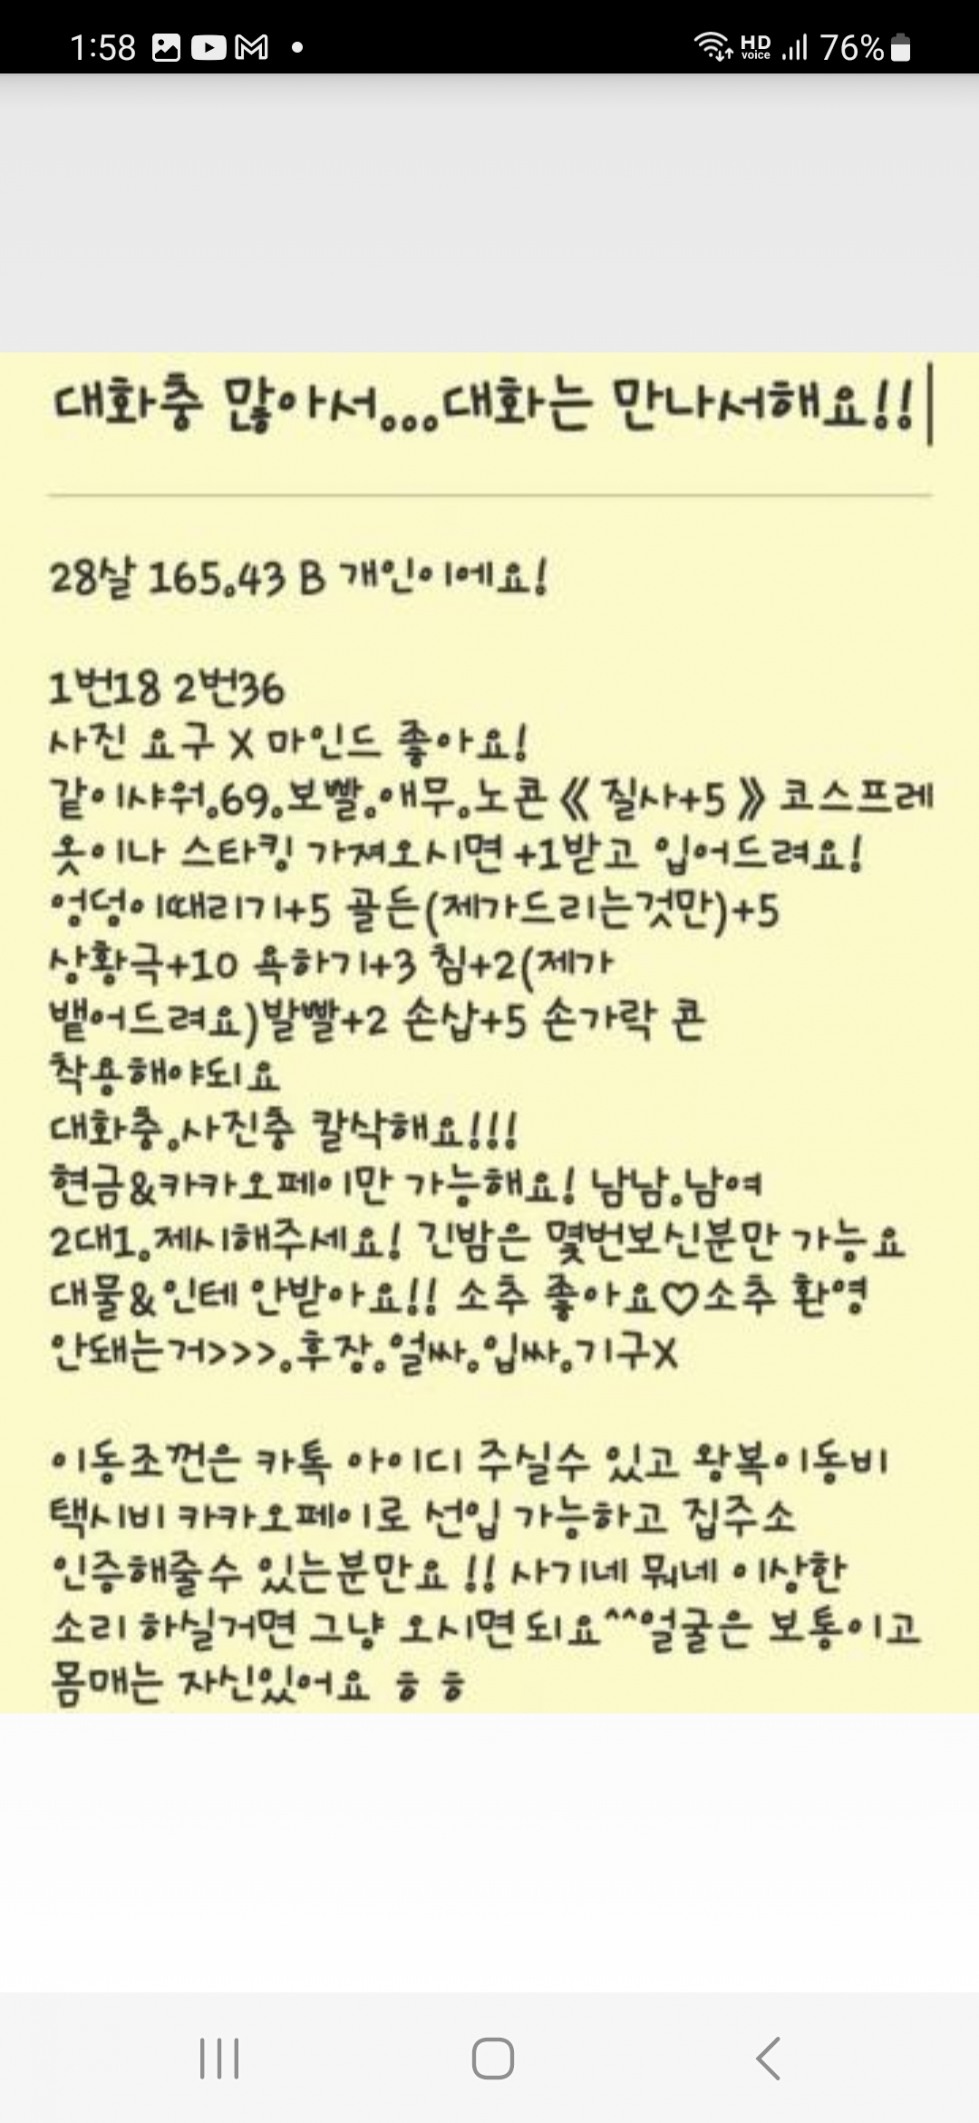 1:58
HD voice
76%
대화충 많아서...대화는 만나서해요!!
28살 165.43 B 개인이에요!
1번18 2번36
사진 요구 X 마인드 좋아요!
같이샤워.69.보빨.애무.노콘《 질사+5 》 코스프레
옷이나 스타킹 가져오시면 +1받고 입어드려요!
엉덩이때리기+5 골든(제가드리는것만)+5
상황극+10 욕하기+3 침+2(제가
뱉어드려요)발빨+2 손삽+5 손가락 콘
착용해야되요
대화충.사진충 칼삭해요!!!
현금&카카오페이만 가능해요! 남남.남여
2대1.제시해주세요! 긴밤은 몇번보신분만 가능요
대물&인테 안받아요!! 소추 좋아요♡소추 환영
안돼는거>>>.후장.얼싸.입싸.기구X
이동조껀은 카톡 아이디 주실수 있고 왕복이동비
택시비 카카오페이로 선입 가능하고 집주소
인증해줄수 있는분만요 !! 사기네 뭐네 이상한
소리 하실거면 그냥 오시면 되요^^얼굴은 보통이고
몸매는 자신있어요 ㅎㅎ